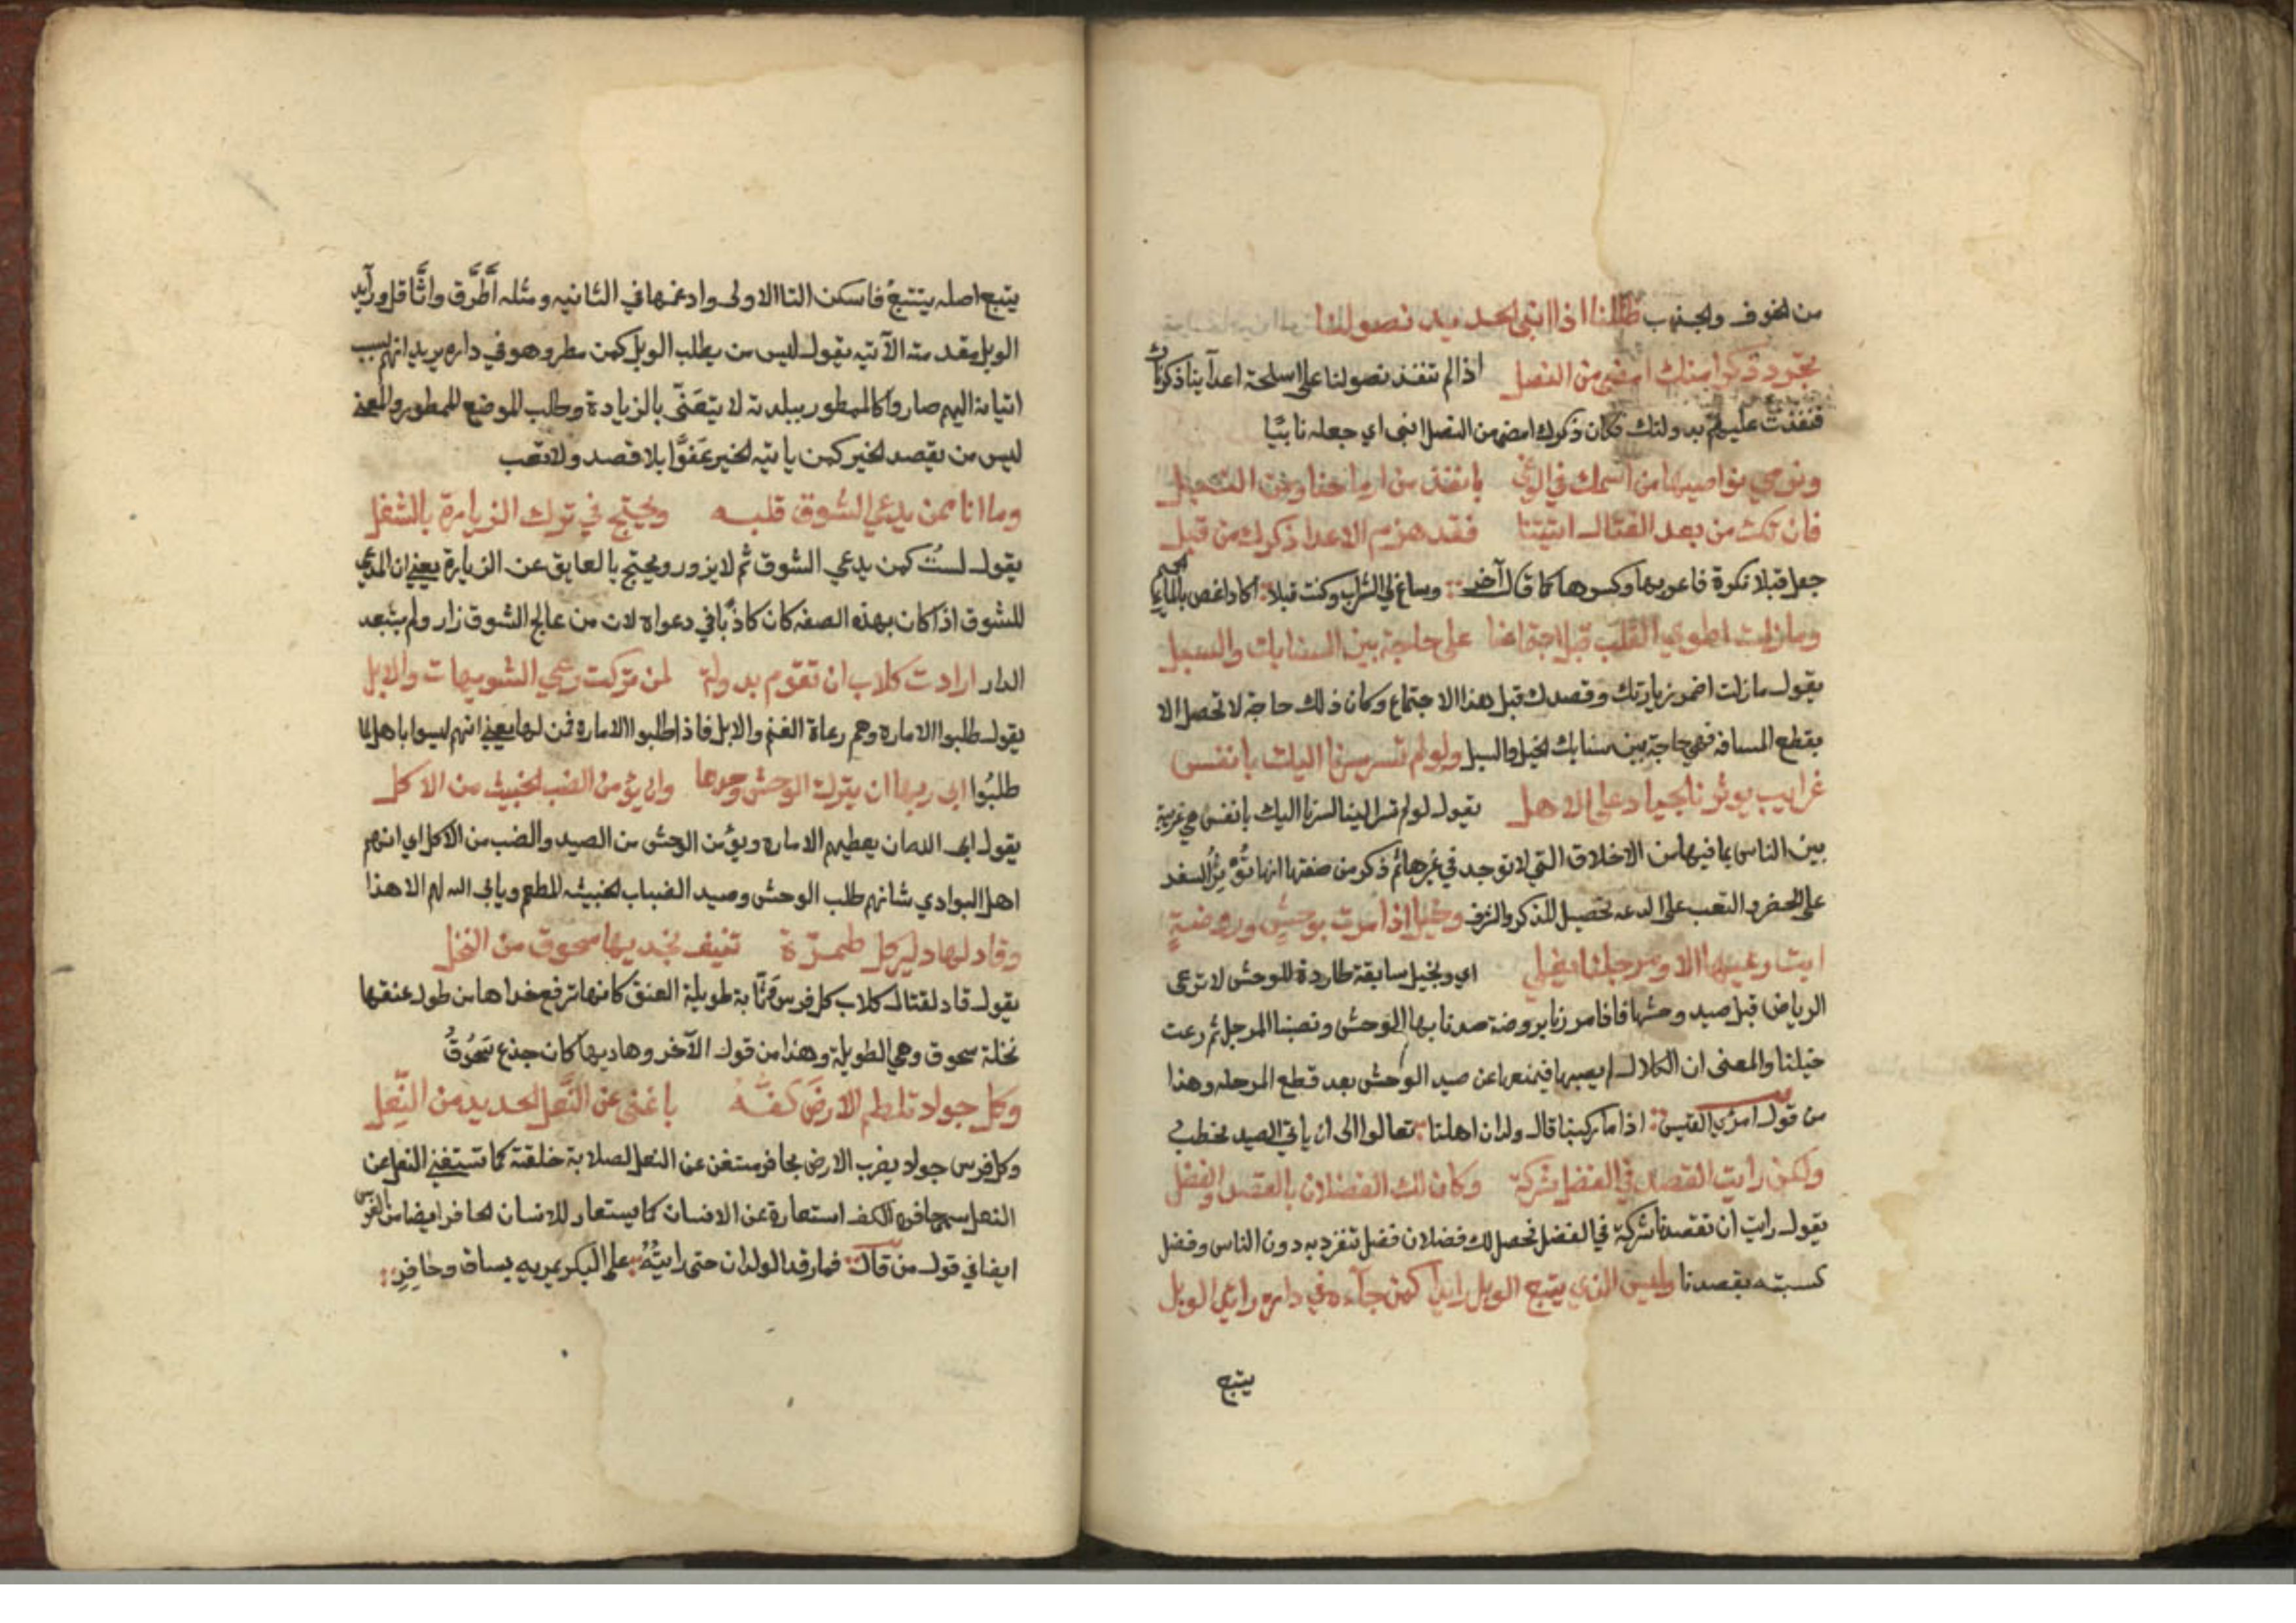 من الخوف والجذب ظللنا اذا انبى الحديد نصولنا
نجرد ذكرا منك امضى من النصل اذا لم تنفذ نصولنا على اسلحة اعدآينا ذكرناك
فنفذت عليهم بدولتك فكان ذكرك امضى من النصل انبى اي جعله نابيًا
ونرمي نواصيها من اسمك في الوغى بانفذ من ارماحنا ومن النبل
فان تكُ من بعد القتال اتيتنا فقد هزم الاعدا ذكرك من قبل
جعل قبلا نكرة فاعربها وكسرها كما قال آخر وساغ لي الشراب وكنت قبلا اكاد اغص بالماء الحميم
وما زلت اطوي القلب قبل اجتماعنا على حاجة بين السنابك والسبل
يقول ما زلت اضمر زيارتك وقصدك قبل هذا الاجتماع وكان ذلك حاجة لا تحصل الا
بقطع المسافة فهي حاجة بين سنابك الخيل والسبل ولو لم تسر سرنا اليك بانفس
غرايب يوثرن الجياد على الاهل يقول لو لم تسر الينا لسرنا اليك بانفس هي غريبة
بين الناس بما فيها من الاخلاق التي لا توجد في غيرها ثم ذكر من صفتها انها تُؤْثِرُ السفر
على الحضر والتعب على الدعه لتحصيل الذكر والشرف وخيل اذا مرت بوحش وروضةٍ
ابت رعيها الا ومرجلنا يغلي اي وبخيل سابقة طاردة للوحش لا ترعى
الرياض قبل صيد وحشها فاذا مررنا بروضة صدنا بها الوحش ونصبنا المرجل ثم رعت
خيلنا والمعنى ان الكلال لم يصبها فيمنعها عن صيد الوحش بعد قطع المرحله وهذا
من قول امرئ القيس اذا ما ركبنا قال ولدان اهلنا تعالوا الى ان ياتي الصيد نحطب
ولكن رايت القصد في الفضل شركة وكان لك الفضلان بالقصد والفضل
يقول رايت ان تقصدنا شركة في الفضل تحصل لك فضلان فضل تنفرد به دون الناس وفضل
كسبته بقصدنا وليس الذي يتبع الوبل رايدا كمن جآءه في داره رايد الوبل
يتبع
يتبع اصله يتتبع فاسكن التا الاولى وادغمها في الثانيه ومثله اَطَّرَّق واثَّاقل ورآيد
الوبل مقدمته الآتيه يقول ليس من يطلب الوبل كمن مطر وهو في داره يريد انهم بسبب
اتيانه اليهم صاروا كالممطور ببلدته لا يتعَنَّى بالزيادة وطلب الموضع الممطور والمعنى
ليس من يقصد الخير كمن ياتيه الخير عَفوًا بلا قصد ولا تعب
وما انا ممن يدعي الشوق قلبه ويحتج في ترك الزيارة بالشغل
يقول لستُ كمن يدعي الشوق ثم لا يزور ويحتج بالعايق عن الزيارة يعني ان المدعي
للشوق اذا كان بهذه الصفه كان كاذبًا في دعواه لان من عالج الشوق زار ولم يستبعد
الدار ارادت كلاب ان تقوم بدولة لمن تركت رعي الشويهات والابل
يقول طلبوا الاماره وهم رعاة الغنم والابل فاذا طلبوا الاماره فمن لها يعني انهم ليسوا باهل لما
طلبُوا ابى ربها ان يترك الوحش وحدها وان يؤمن الضب الخبيث من الاكل
يقول ابى الله ان يعطيهم الاماره ويؤمن الوحش من الصيد والضب من الاكل اي انهم
اهل البوادي شانهم طلب الوحش وصيد الضباب الخبيثه المطعم ويابى الله لهم الا هذا
وقاد لها دلير كل طمرّة تنيف بخديها سحوق من النخل
يقول قاد لقتال كلاب كل فرس وثّابة طويلة العنق كانها ترفع خداها من طول عنقها
نخلة سحوق وهي الطويلة وهذا من قول الآخر وهاديها كان جذع سَحُوقُ
وكل جواد تلطم الارضَ كفّهُ باغنى عن النَّعل الحديد من النّعل
وكل فرس جواد يضرب الارض بحافر مستغن عن النعل لصلابة خلقته كما تستغني النعل عن
النعل سمى حافره الكف استعارة عن الانسان كما يستعار للانسان الحافر ايضا من الفرس
ايضا في قول من قال فما رقد الولدان حتى رايتُهُ على البكر يمريه بساق وحَافِرِ